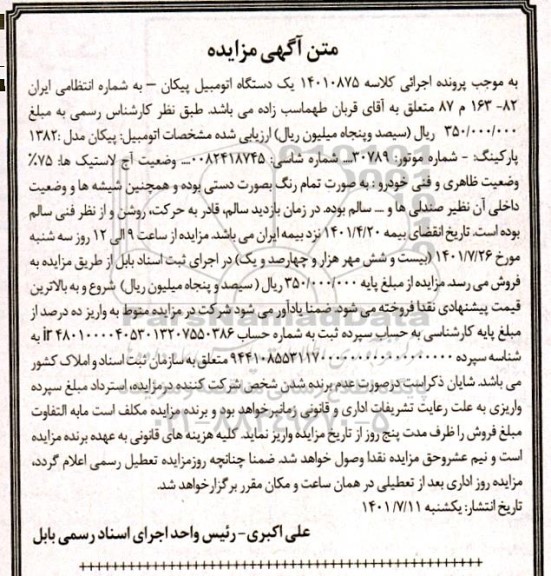 متن آگهی مزایده
به موجب پرونده اجرائی کلاسه ۱۴۰۱۰۸۷۵ یک دستگاه اتومبیل پیکان – به شماره انتظامی ایران
۸۲- ۱۶۳ م ۸۷ متعلق به آقای قربان طهماسب زاده می باشد. طبق نظر کارشناس رسمی به مبلغ
۳۵۰/۰۰۰/۰۰۰ ریال (سیصد وپنجاه میلیون ریال) ارزیابی شده مشخصات اتومبیل: پیکان مدل :۱۳۸۲
پارکینگ: - شماره موتور: ۳۰۷۸۹.... شماره شاسی: ۰۰۸۲۴۱۸۷۴۵.... وضعیت آج لاستیک ها: ۷۵٪
وضعیت ظاهری و فنی خودرو : به صورت تمام رنگ بصورت دستی بوده و همچنین شیشه ها و وضعیت
داخلی آن نظیر صندلی ها و ... سالم بوده. در زمان بازدید سالم، قادر به حرکت، روشن و از نظر فنی سالم
بوده است. تاریخ انقضای بیمه ۱۴۰۱/۴/۲۰ نزد بیمه ایران می باشد. مزایده از ساعت ۹ الی ۱۲ روز سه شنبه
مورخ ۱۴۰۱/۷/۲۶ (بیست و شش مهر هزار و چهارصد و یک) در اجرای ثبت اسناد بابل از طریق مزایده به
فروش می رسد. مزایده از مبلغ پایه ۳۵۰/۰۰۰/۰۰۰ ریال ( سیصد و پنجاه میلیون ریال) شروع و به بالاترین
قیمت پیشنهادی نقدا فروخته می شود. ضمنا یادآور می شود شرکت در مزایده منوط به واریز ده درصد از
مبلغ پایه کارشناسی به حساب سپرده ثبت به شماره حساب ir ۴۸۰۱۰۰۰۰۴۰۵۳۰۱۳۲۰۷۵۵۰۳۸۶ به
شناسه سپرده متعلق به سازمان ثبت اسناد و املاک کشور
می باشد. شایان ذکراست درصورت عدم برنده شدن شخص شرکت کننده درمزایده، استرداد مبلغ سپرده
واریزی به علت رعایت تشریفات اداری و قانونی زمانبرخواهد بود و برنده مزایده مکلف است مابه التفاوت
مبلغ فروش را ظرف مدت پنج روز از تاریخ مزایده واریز نماید. کلیه هزینه های قانونی به عهده برنده مزایده
است و نیم عشروحق مزایده نقدا وصول خواهد شد. ضمنا چنانچه روزمزایده تعطیل رسمی اعلام گردد،
مزایده روز اداری بعد از تعطیلی در همان ساعت و مکان مقرر برگزارخواهد شد.
تاریخ انتشار: یکشنبه ۱۴۰۱/۷/۱۱
علی اکبری- رئیس واحد اجرای اسناد رسمی بابل
ParsNamadData
۰۲۱-۸۸۳۴۹۶۷۰-۵